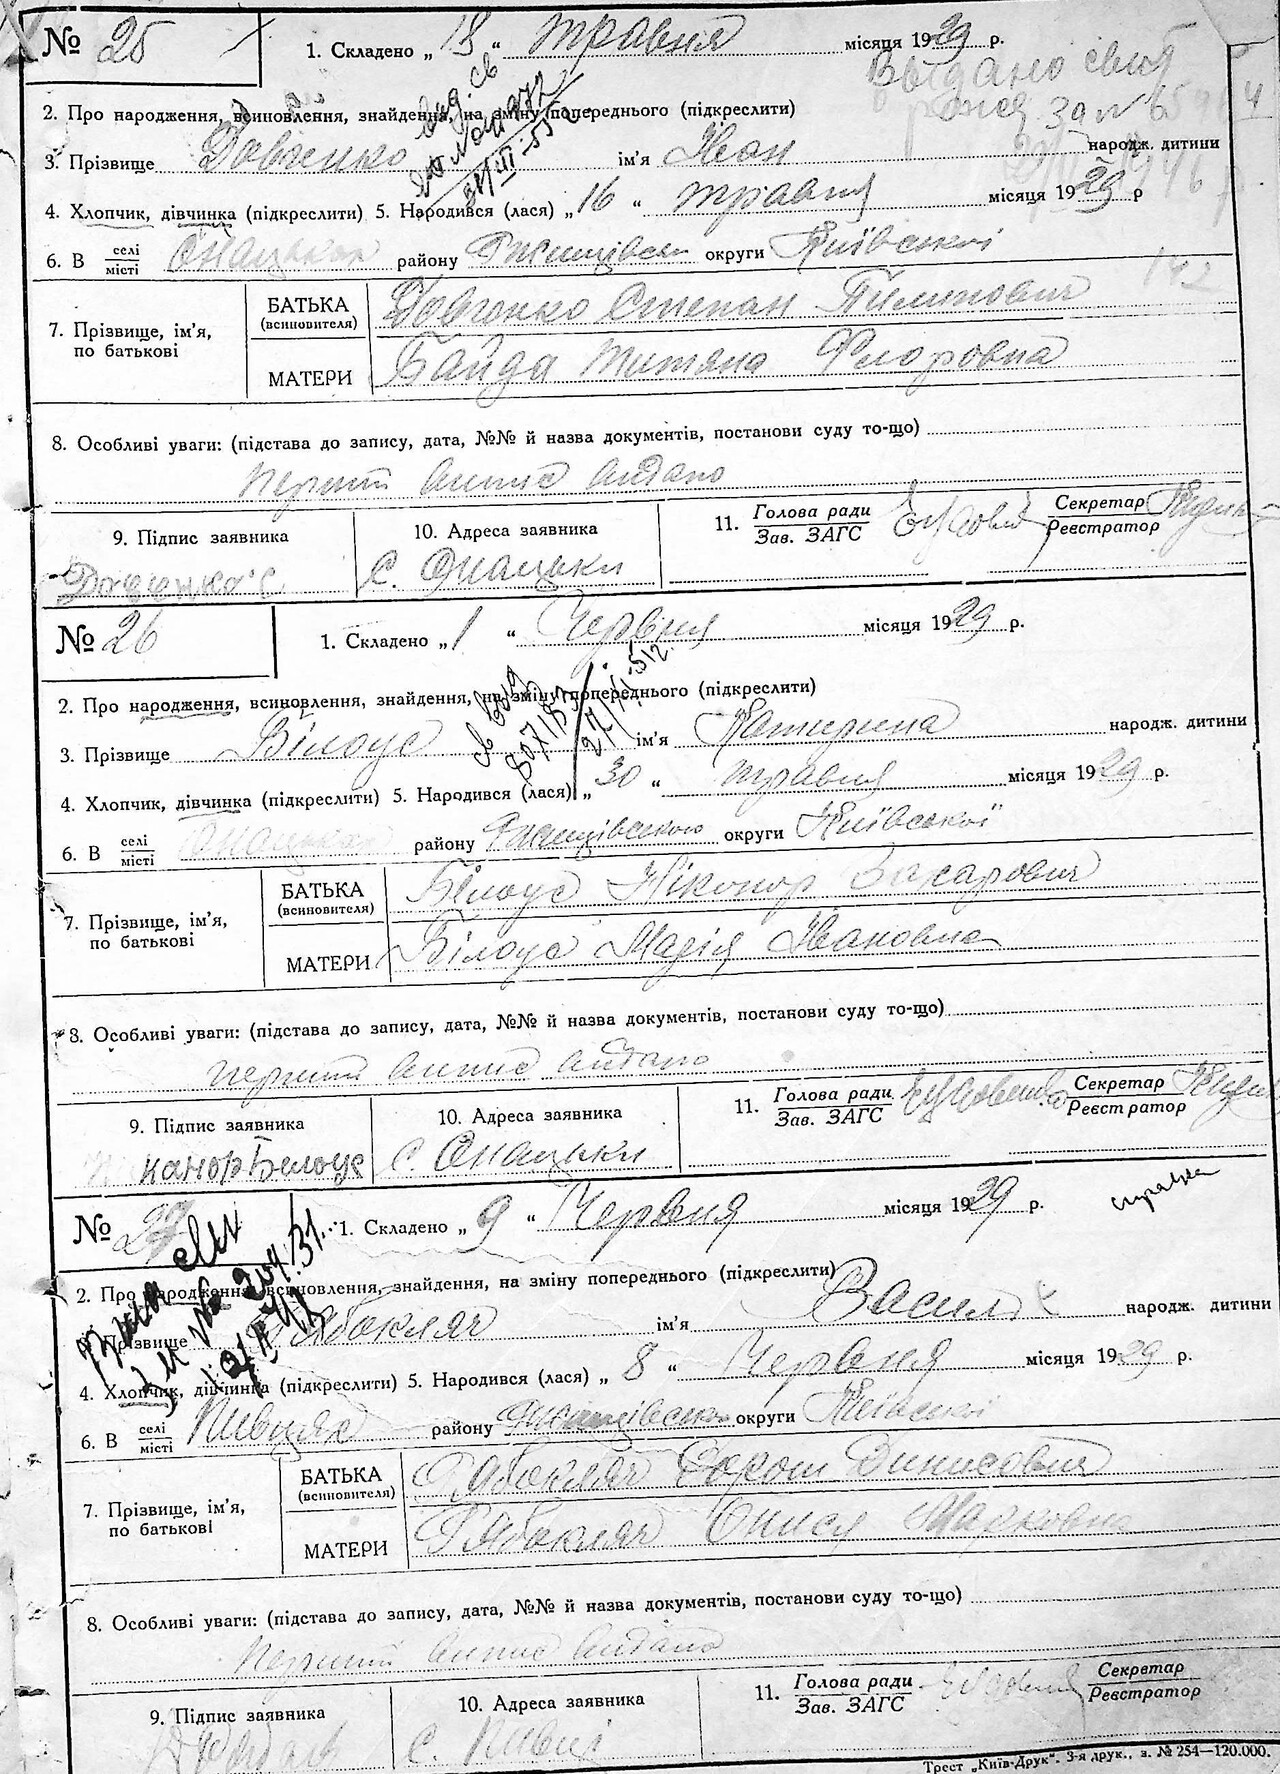 № 25 1. Складено „ 18 “ травня місяця 1929 р.
Видано свид
2. Про народження, всиновлення, знайдення, на зміну попереднього (підкреслити)
3. Прізвище Довгенко ім'я Іван народж. дитини
4. Хлопчик, дівчинка (підкреслити) 5. Народився (лася) „ 16 “ травня місяця 1929 р
6. В селі місті Онацьках району Ржищівськ округи Київської
7. Прізвище, ім'я, по батькові
БАТЬКА (всиновителя) Довгенко Степан Пилипович
МАТЕРИ Байда Титяна Флоровна
8. Особливі уваги: (підстава до запису, дата, №№ й назва документів, постанови суду то-що)
9. Підпис заявника 10. Адреса заявника 11. Голова ради Зав. ЗАГС Секретар Реєстратор
с. Онацьки
№ 26 1. Складено „ 1 “ Червня місяця 1929 р.
2. Про народження, всиновлення, знайдення, на зміну попереднього (підкреслити)
3. Прізвище Білоус ім'я Катирина народж. дитини
4. Хлопчик, дівчинка (підкреслити) 5. Народився (лася) „ 30 “ травня місяця 1929 р.
6. В селі місті Онацьках району Ржищівського округи Київської
7. Прізвище, ім'я, по батькові
БАТЬКА (всиновителя) Білоус Ніконор Захарович
МАТЕРИ Білоус Марія Івановна
8. Особливі уваги: (підстава до запису, дата, №№ й назва документів, постанови суду то-що)
9. Підпис заявника 10. Адреса заявника 11. Голова ради Зав. ЗАГС Секретар Реєстратор
канор Белоус с. Онацьки
№ 27 1. Складено „ 9 “ Червня місяця 1929 р. справка
2. Про народження, всиновлення, знайдення, на зміну попереднього (підкреслити)
3. Прізвище Рябокляч ім'я Василь народж. дитини
4. Хлопчик, дівчинка (підкреслити) 5. Народився (лася) „ 8 “ Червня місяця 1929 р.
6. В селі місті Півцях району Ржищівського округи Київської
7. Прізвище, ім'я, по батькові
БАТЬКА (всиновителя) Рябокляч Денисович
МАТЕРИ Рябокляч Онися Марковна
8. Особливі уваги: (підстава до запису, дата, №№ й назва документів, постанови суду то-що)
9. Підпис заявника 10. Адреса заявника 11. Голова ради Зав. ЗАГС Секретар Реєстратор
с. Півці
Трест „Київ-Друк“. 3-я друк., з. № 254—120.000.